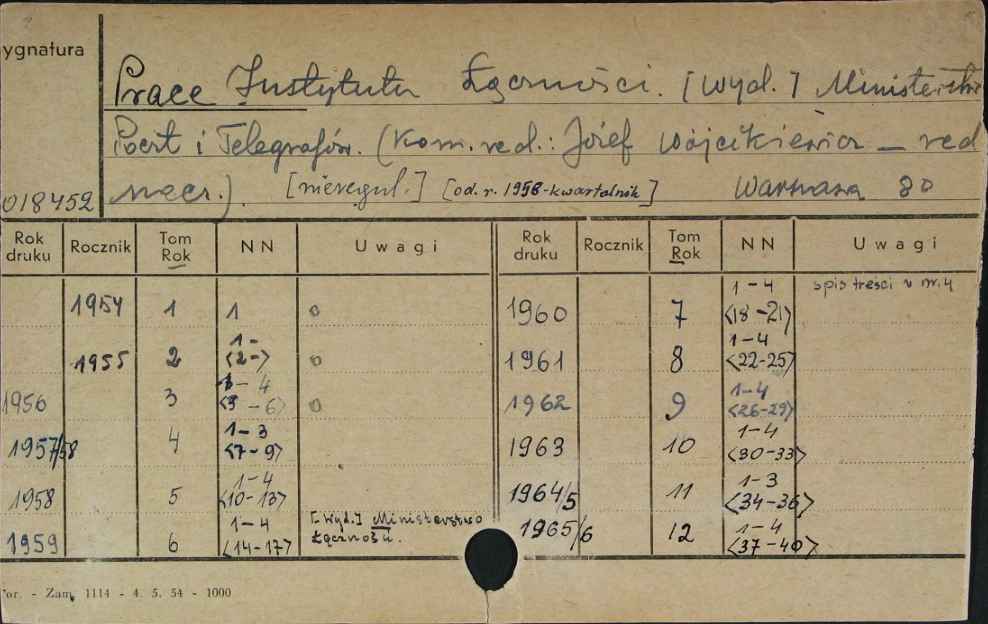 ygnatura
Prace Instytutu Łączności. [Wyd.] Ministerstwo
Poczt i Telegrafów. (Kom. red.: Józef Wójcikiewicz – red
nacz.). [nieregul.] [od. r. 1958-kwartalnik] Warszawa 80
018452
Rok druku Rocznik Tom Rok NN Uwagi Rok druku Rocznik Tom Rok NN Uwagi
1954 1 1 o 1960 7 1-4 <18-21> spis treści w nr. 4
1955 2 1- <2-> o 1961 8 1-4 <22-25>
1956 3 1-4 <3-6> o 1962 9 1-4 <26-29>
1957/58 4 1-3 <7-9> 1963 10 1-4 <30-33>
1958 5 1-4 <10-13> 1964/5 11 1-3 <34-36>
1959 6 1-4 <14-17> [Wyd.] Ministerstwo Łączności. 1965/6 12 1-4 <37-40>
or. - Zam. 1114 - 4. 5. 54 - 1000